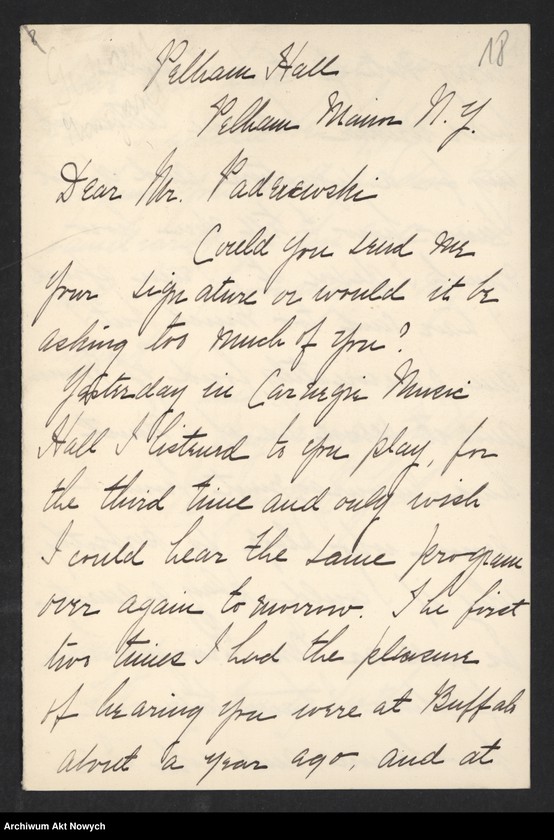 18
Pelham Hall
Pelham Manor N.Y.
Dear Mr. Paderewski
Could you send me
your signature or would it be
asking too much of you?
Yesterday in Carnegie Music
Hall I listened to you play, for
the third time and only wish
I could hear the same program
over again tomorrow. The first
two times I had the pleasure
of hearing you were at Buffalo
about a year ago, and at
Archiwum Akt Nowych